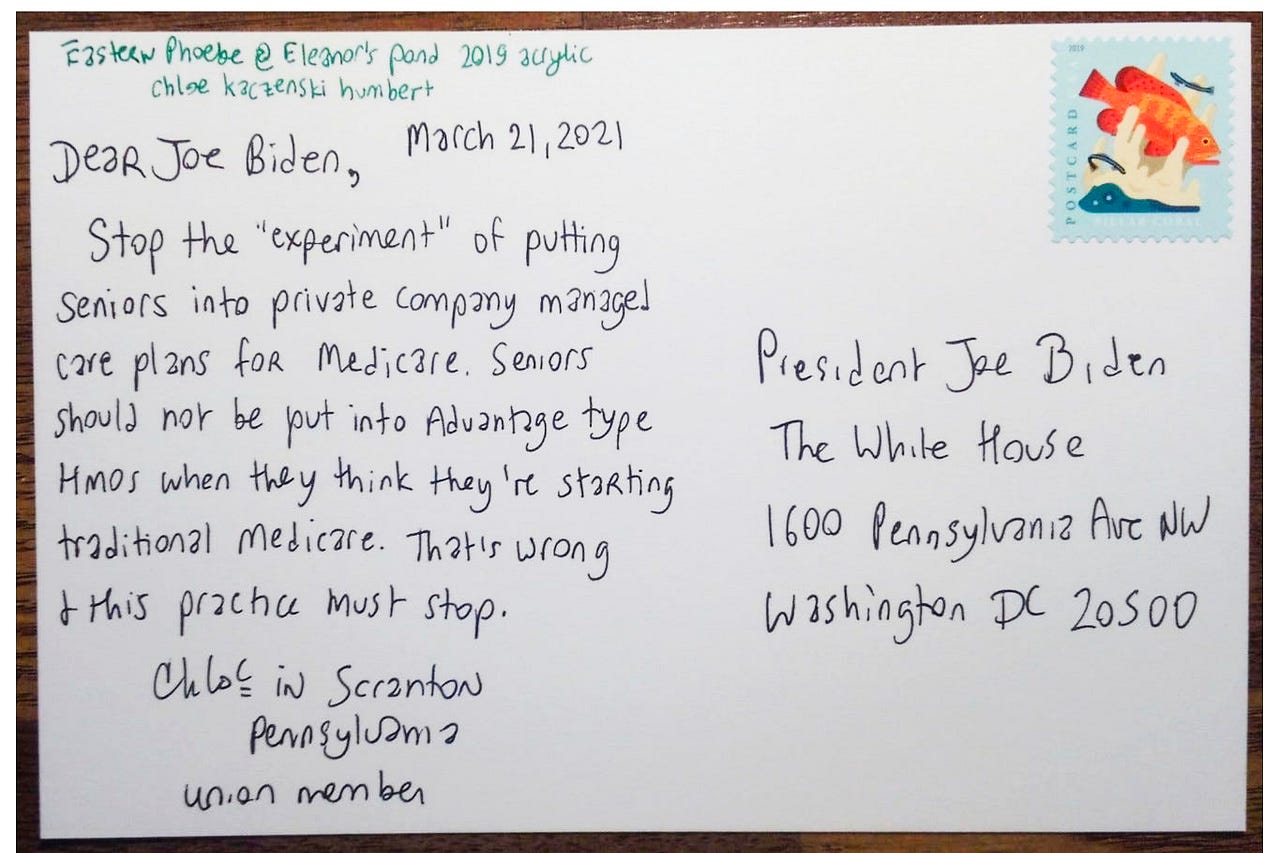 Eastern Phoebe @ Eleanor's pond 2019 acrylic
chloe kaczenski humbert
March 21, 2021
Dear Joe Biden,
Stop the "experiment" of putting
seniors into private company managed
care plans for Medicare. Seniors
should not be put into Advantage type
HMOs when they think they're starting
traditional Medicare. That's wrong
& this practice must stop.
Chloe in Scranton
Pennsylvania
union member
2019
POSTCARD USA
PILLAR CORAL
President Joe Biden
The White House
1600 Pennsylvania Ave NW
Washington DC 20500